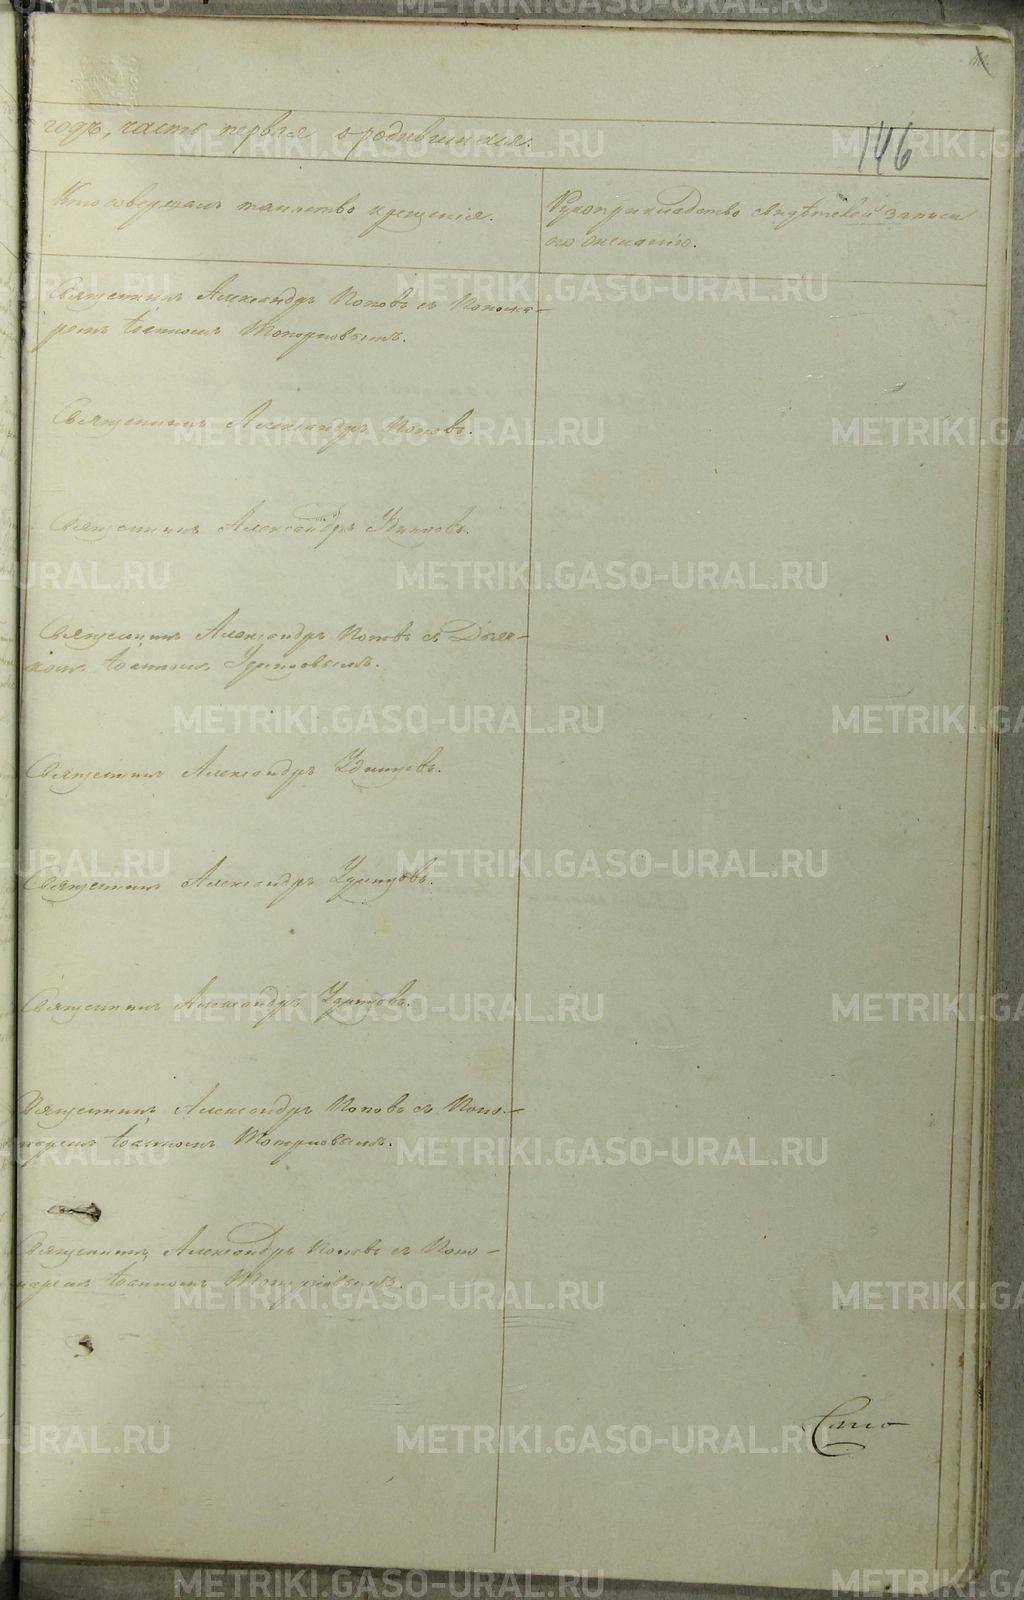 годъ, часть первая о родившихся.
146
Кто совершалъ таинство крещенія.
Рукоприкладство свидѣтелей записи
по желанію.
Священникъ Александръ Поповъ съ Понома-
ремъ Іоанномъ Топорковымъ.
Священникъ Александръ Поповъ.
Священникъ Александръ Удинцовъ.
Священникъ Александръ Поповъ съ Дьяч-
комъ Іоанномъ Удинцовымъ.
Священникъ Александръ Удинцовъ.
Священникъ Александръ Удинцовъ.
Священникъ Александръ Удинцовъ.
Священникъ Александръ Поповъ съ Поно-
маремъ Іоанномъ Топорковымъ.
Священникъ Александръ Поповъ съ Поно-
маремъ Іоанномъ Топорковымъ.
METRIKI.GASO-URAL.RU